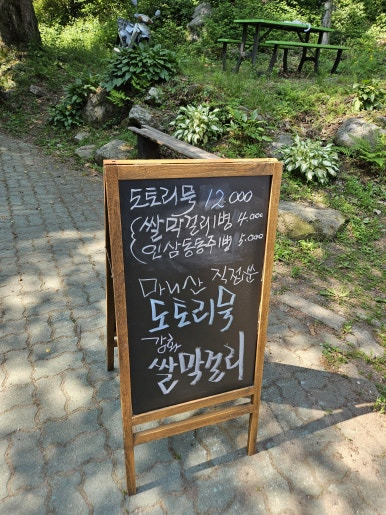 도토리묵 12000
쌀막걸리1병 4.000
인삼동동주1병 5.000
마니산 직접쑨
도토리묵
강화
쌀막걸리